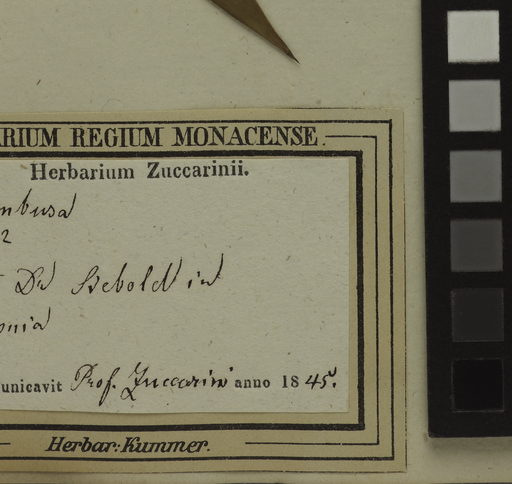 ARIUM REGIUM MONACENSE.
Herbarium Zuccarinii.
mbusa
2
Dr Siebold in
onia
unicavit Prof. Zuccarini anno 1845.
Herbar: Kummer.